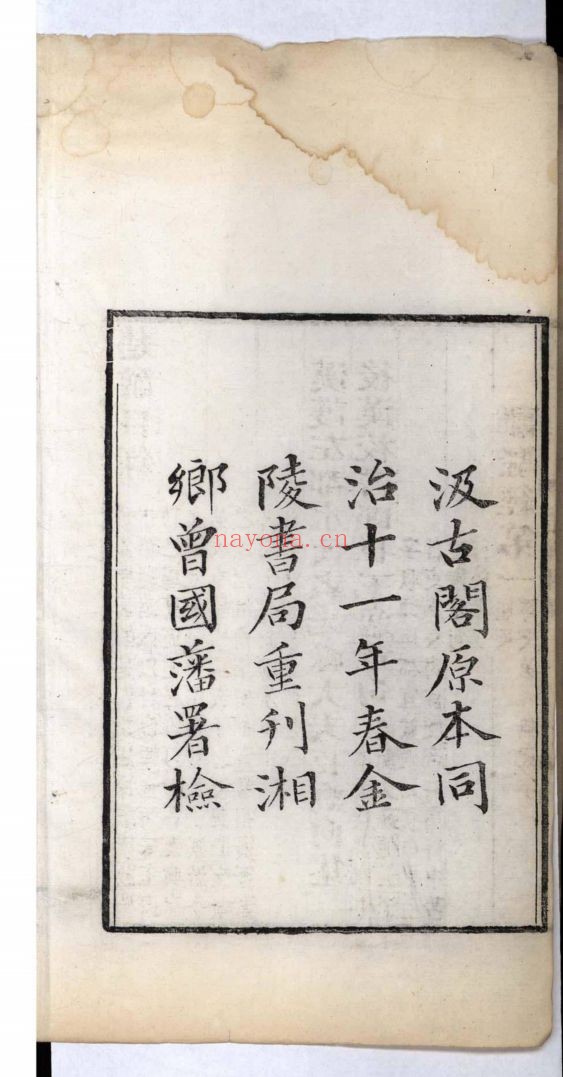 汲古閣原本同
治十一年春金
陵書局重刊湘
鄉曾國藩署檢
nayona.cn